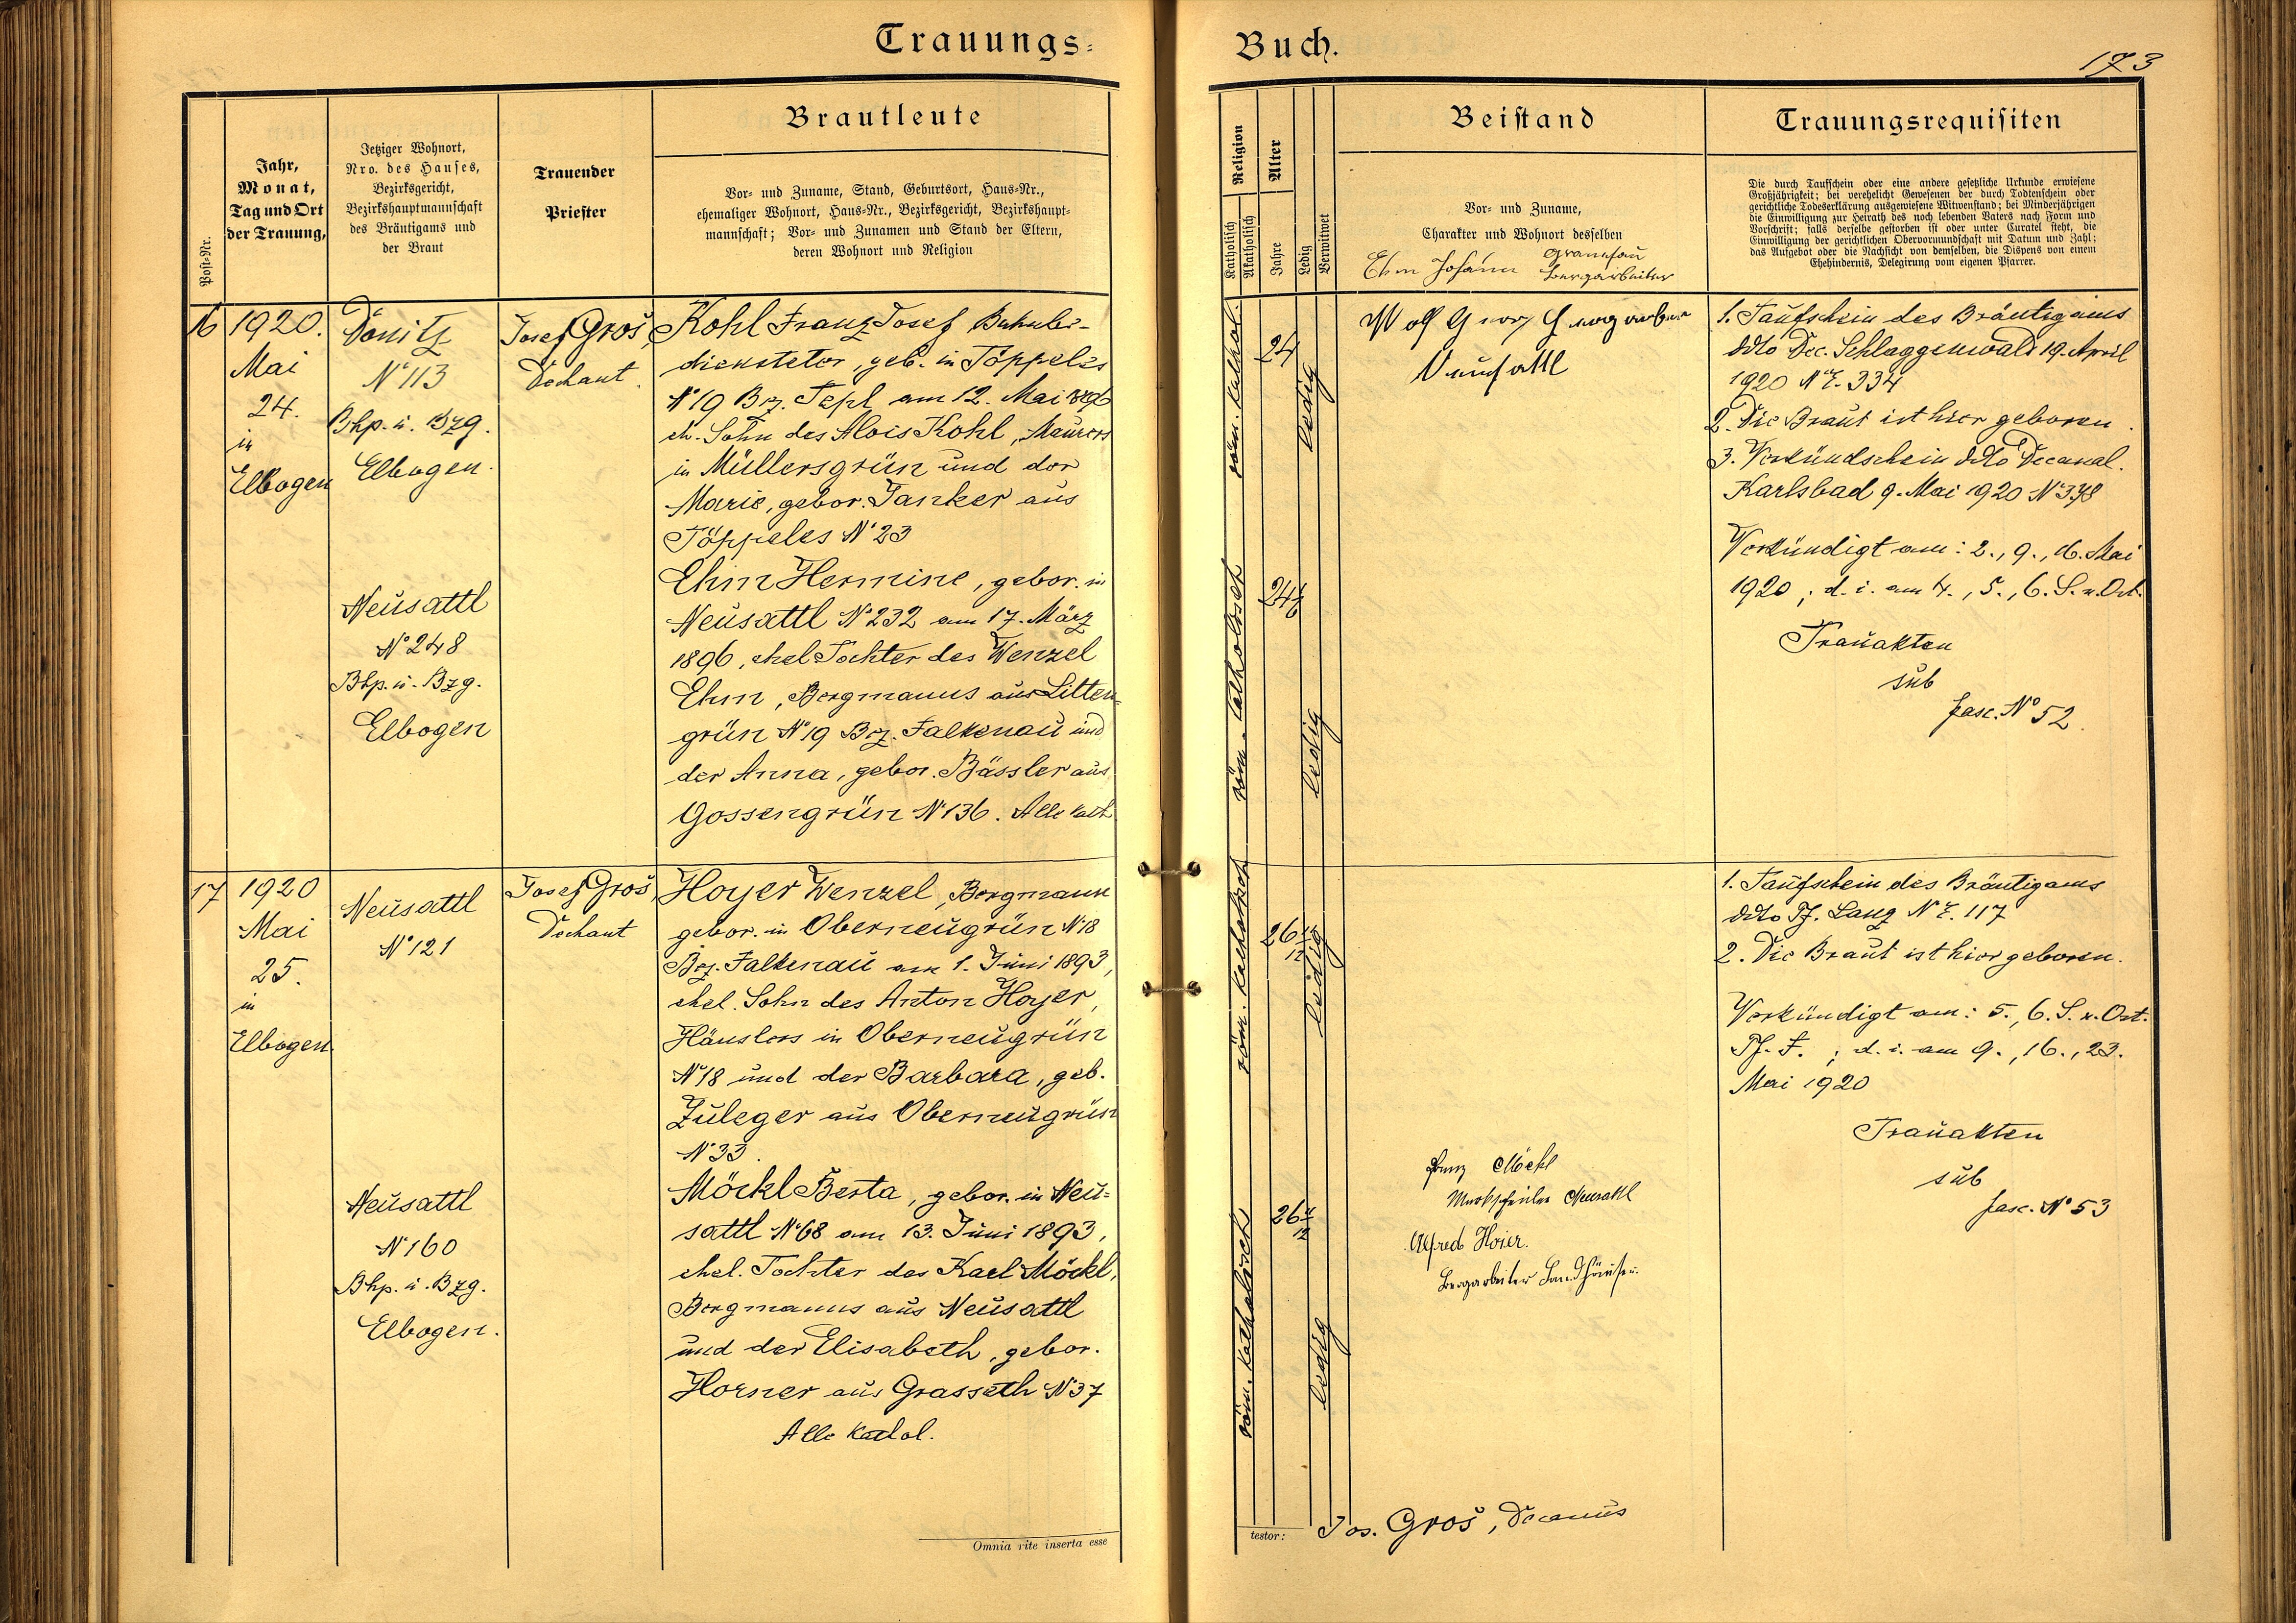 Trauungs=
Post-Nr.
Jahr,
Monat,
Tag und Ort
der Trauung,
Jetziger Wohnort,
Nro. des Hauses,
Bezirksgericht,
Bezirkshauptmannschaft
des Bräutigams und
der Braut
Trauender
Priester
Brautleute
Vor- und Zuname, Stand, Geburtsort, Haus-Nr.,
ehemaliger Wohnort, Haus-Nr., Bezirksgericht, Bezirkshaupt-
mannschaft; Vor- und Zunamen und Stand der Eltern,
deren Wohnort und Religion
16
1920.
Mai
24.
in
Elbogen
Donitz
N° 113
Bhp. u. Bzg.
Elbogen.
Neusattl
N° 248
Bhp. u. Bzg.
Elbogen
Josef Groš,
Dechant.
Kohl Franz Josef Bahnbe-
diensteter, geb. in Töppeles
N° 19 Bz. Tepl am 12. Mai 1896
eh. Sohn des Alois Kohl, Maurers
in Müllersgrün und der
Marie, gebor. Janker aus
Töppeles N° 23
Ehm Hermine, gebor. in
Neusattl N° 232 am 17. März
1896, ehel Tochter des Wenzel
Ehm, Bergmanns aus Litten-
grün N° 19 Bez. Falkenau und
der Anna, gebor. Bässler aus
Gossengrün N° 136. Alle kath
17
1920
Mai
25.
in
Elbogen.
Neusattl
N° 121
Neusattl
N° 160
Bhp. u. Bzg.
Elbogen.
Josef Groš,
Dechant
Hoyer Wenzel, Bergmann
gebor. in Oberneugrün N° 18
Bez. Falkenau am 1. Juni 1893,
ehel. Sohn des Anton Hoyer,
Häuslers in Oberneugrün
N° 18 und der Barbara, geb.
Zuleger aus Oberneugrün
N° 33.
Möckl Berta, gebor. in Neu=
sattl N° 68 am 13. Juni 1893,
ehel. Tochter des Karl Möckl,
Bergmanns aus Neusattl
und der Elisabeth, gebor.
Horner aus Grasseth N° 37
Alle kathol.
Omnia rite inserta esse
Buch.
173
Religion
Katholisch
Akatholisch
Alter
Jahre
Ledig
Verwitwet
Beistand
Vor- und Zuname,
Charakter und Wohnort desselben
Ehm Johann
Bergarbeiter
Trauungsrequisiten
Die durch Taufschein oder eine andere gesetzliche Urkunde erwiesene
Großjährigkeit; bei verehelicht Gewesenen der durch Todtenschein oder
gerichtliche Todeserklärung ausgewiesene Witwenstand; bei Minderjährigen
die Einwilligung zur Heirath des noch lebenden Vaters nach Form und
Vorschrift; falls derselbe gestorben ist oder unter Curatel steht, die
Einwilligung der gerichtlichen Obervormundschaft mit Datum und Zahl;
das Aufgebot oder die Nachsicht von demselben, die Dispens von einem
Ehehindernis, Delegirung vom eigenen Pfarrer.
röm. kathol.
24
ledig
röm. katholisch
24
ledig
Neusattl
1. Taufschein des Bräutigams
ddto Dec. Schlaggenwald 19. April
1920 N.E. 334
2. Die Braut ist hier geboren.
3. Verkündschein ddto Decanal.
Karlsbad 9. Mai 1920 N° 378
Verkündigt am: 2., 9., 16. Mai
1920; d. i. am 4., 5., 6. S. n. Ost.
Trauakten
sub
fasc. N° 52.
röm. katholisch
26
12
ledig
röm. katholisch
26
12
ledig
Franz Möckl
Neusattl
Alfred Hoier.
Bergarbeiter
1. Taufschein des Bräutigams
ddto Pf. Lanz N.E. 117
2. Die Braut ist hier geboren.
Verkündigt am: 5., 6. S. n. Ost.
Pf. F.; d. i. am 9., 16., 23.
Mai 1920
Trauakten
sub
fasc. N° 53
testor:
Jos. Groš, Decanus